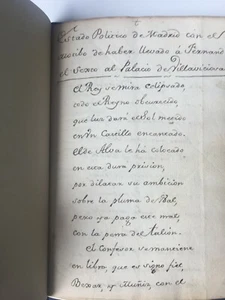 Estado Politico de Madrid con el
motibo de haber llevado á Fernando
el Sexto al Palacio de Villaviciosa
el Rey se mira eclipsado,
todo el Reyno obscurecido,
que luz dará el Sol metido
en Vn Castillo encantado.
el de Alva le ha colocado
en esta dura prision,
por dilatar su ambicion
sobre la pluma de Bal,
pero ya paga este mal,
con la pena del talion.
el Confesor se mantiene
en libro, que es signo fiel,
y Muñiz, con el